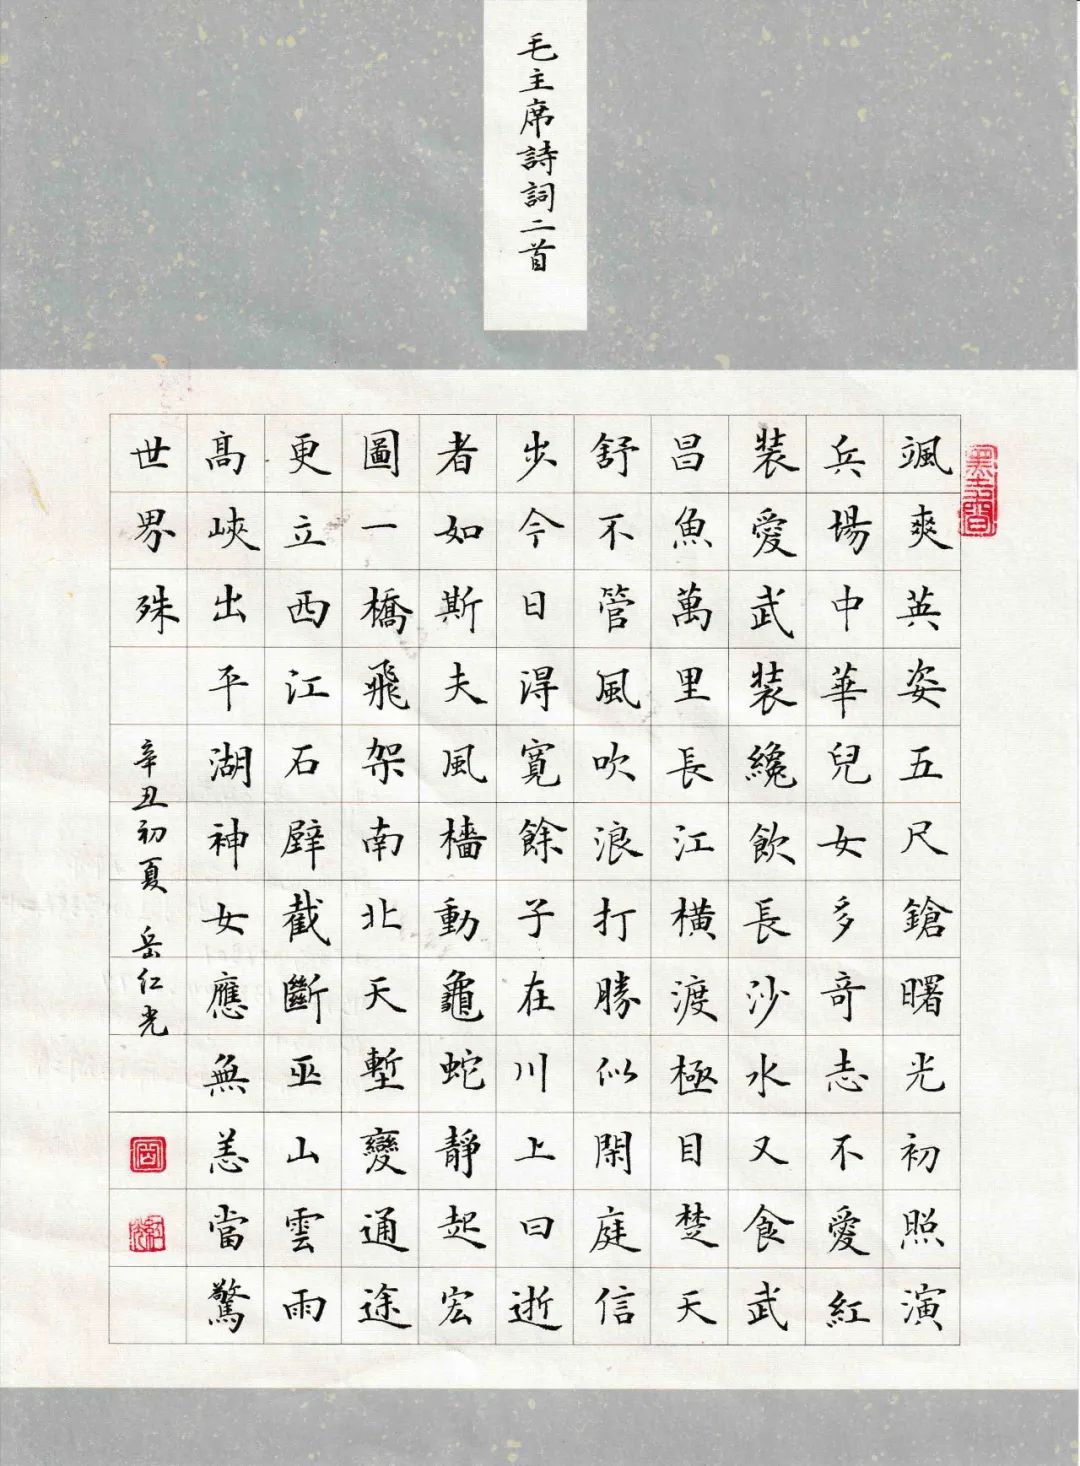 毛主席詩詞二首
颯爽英姿五尺鎗曙光初照演
兵場中華兒女多奇志不愛紅
裝愛武裝纔飲長沙水又食武
昌魚萬里長江橫渡極目楚天
舒不管風吹浪打勝似閑庭信
步今日得寬餘子在川上曰逝
者如斯夫風檣動龜蛇靜起宏
圖一橋飛架南北天塹變通途
更立西江石壁截斷巫山雲雨
高峽出平湖神女應無恙當驚
世界殊
辛丑初夏 岳仁光